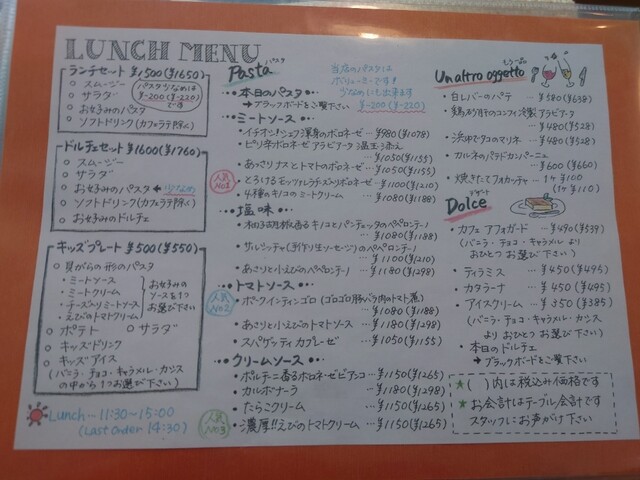 LUNCH MENU
ランチセット ¥1500(¥1650)
○ スムージー
○ サラダ
○ お好みのパスタ
○ ソフトドリンク(カフェラテ除く)
パスタ少なめは
¥-200(¥-220)
です
ドルチェセット ¥1600(¥1760)
○ スムージー
○ サラダ
○ お好みのパスタ ← 少なめ
○ ソフトドリンク(カフェラテ除く)
○ お好みのドルチェ
キッズプレート ¥500(¥550)
○ 貝がらの形のパスタ
・ミートソース
・ミートクリーム
・チーズ入りミートソース
・えびのトマトクリーム
お好みの
ソースを1つ
お選び下さい
○ ポテト ○ サラダ
○ キッズドリンク
○ キッズアイス
(バニラ・チョコ・キャラメル・カシス
の中から1つお選び下さい)
Lunch~11:30~15:00
(Last Order 14:30)
Pasta パスタ
当店のパスタは
ボリューミーです!
少なめにも出来ます
¥-200(¥-220)
本日のパスタ
→ブラックボードをご覧下さい
ミートソース
・イチオシ!シェフ渾身のボロネーゼ ¥980(¥1078)
・ピリ辛ボロネーゼアラビアータ 温玉添え
¥1050(¥1155)
・あさりナスとトマトのボロネーゼ ¥1050(¥1155)
人気No1
・とろけるモッツァレラチーズのボロネーゼ ¥1100(¥1210)
・4種のキノコのミートクリーム ¥1080(¥1188)
塩味
・柚子胡椒香るキノコとパンチェッタのペペロンチーノ
¥1080(¥1188)
・サルシッチャ(手作り生ソーセージ)のペペロンチーノ
¥1100(¥1210)
・あさりと小えびのペペロンチーノ ¥1180(¥1298)
トマトソース
人気No2
・ポークインティンゴロ(ゴロゴロ豚バラ肉のトマト煮)
¥1080(¥1188)
・あさりと小えびのトマトソース ¥1180(¥1298)
・スパゲッティカプレーゼ ¥1050(¥1155)
クリームソース
・ポルチーニ香るボロネーゼビアンコ ¥1150(¥1265)
・カルボナーラ ¥1180(¥1298)
・たらこクリーム ¥1150(¥1265)
人気No3
・濃厚!!えびのトマトクリーム ¥1150(¥1265)
Un altro oggetto
・白レバーのパテ ¥580(¥638)
¥480(¥528)
・浜ゆでタコのマリネ ¥480(¥528)
・カルネのパテドカンパーニュ
¥600(¥660)
・焼きたてフォカッチャ 1ヶ ¥100
(1ヶ ¥110)
Dolce デザート
・カフェアフォガード ¥490(¥539)
(バニラ・チョコ・キャラメルより
おひとつお選び下さい)
・ティラミス ¥450(¥495)
・カタラーナ ¥450(¥495)
・アイスクリーム ¥350(¥385)
(バニラ・チョコ・キャラメル・カシス
よりおひとつお選び下さい)
・本日のドルチェ
→ブラックボードをご覧下さい
★( )内は税込み価格です
★お会計はテーブル会計です
スタッフにお声がけ下さい